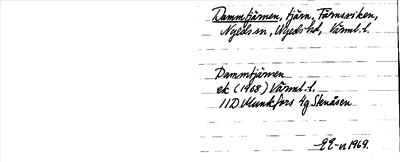 Dammtjärnen, tjärn, Färnsviken,
Nyeds sn, Nyeds hd, Värml. l.
Dammtjärnen
ek (1968) Värml. l.
11D Munkfors 4g Stenåsen
1969.